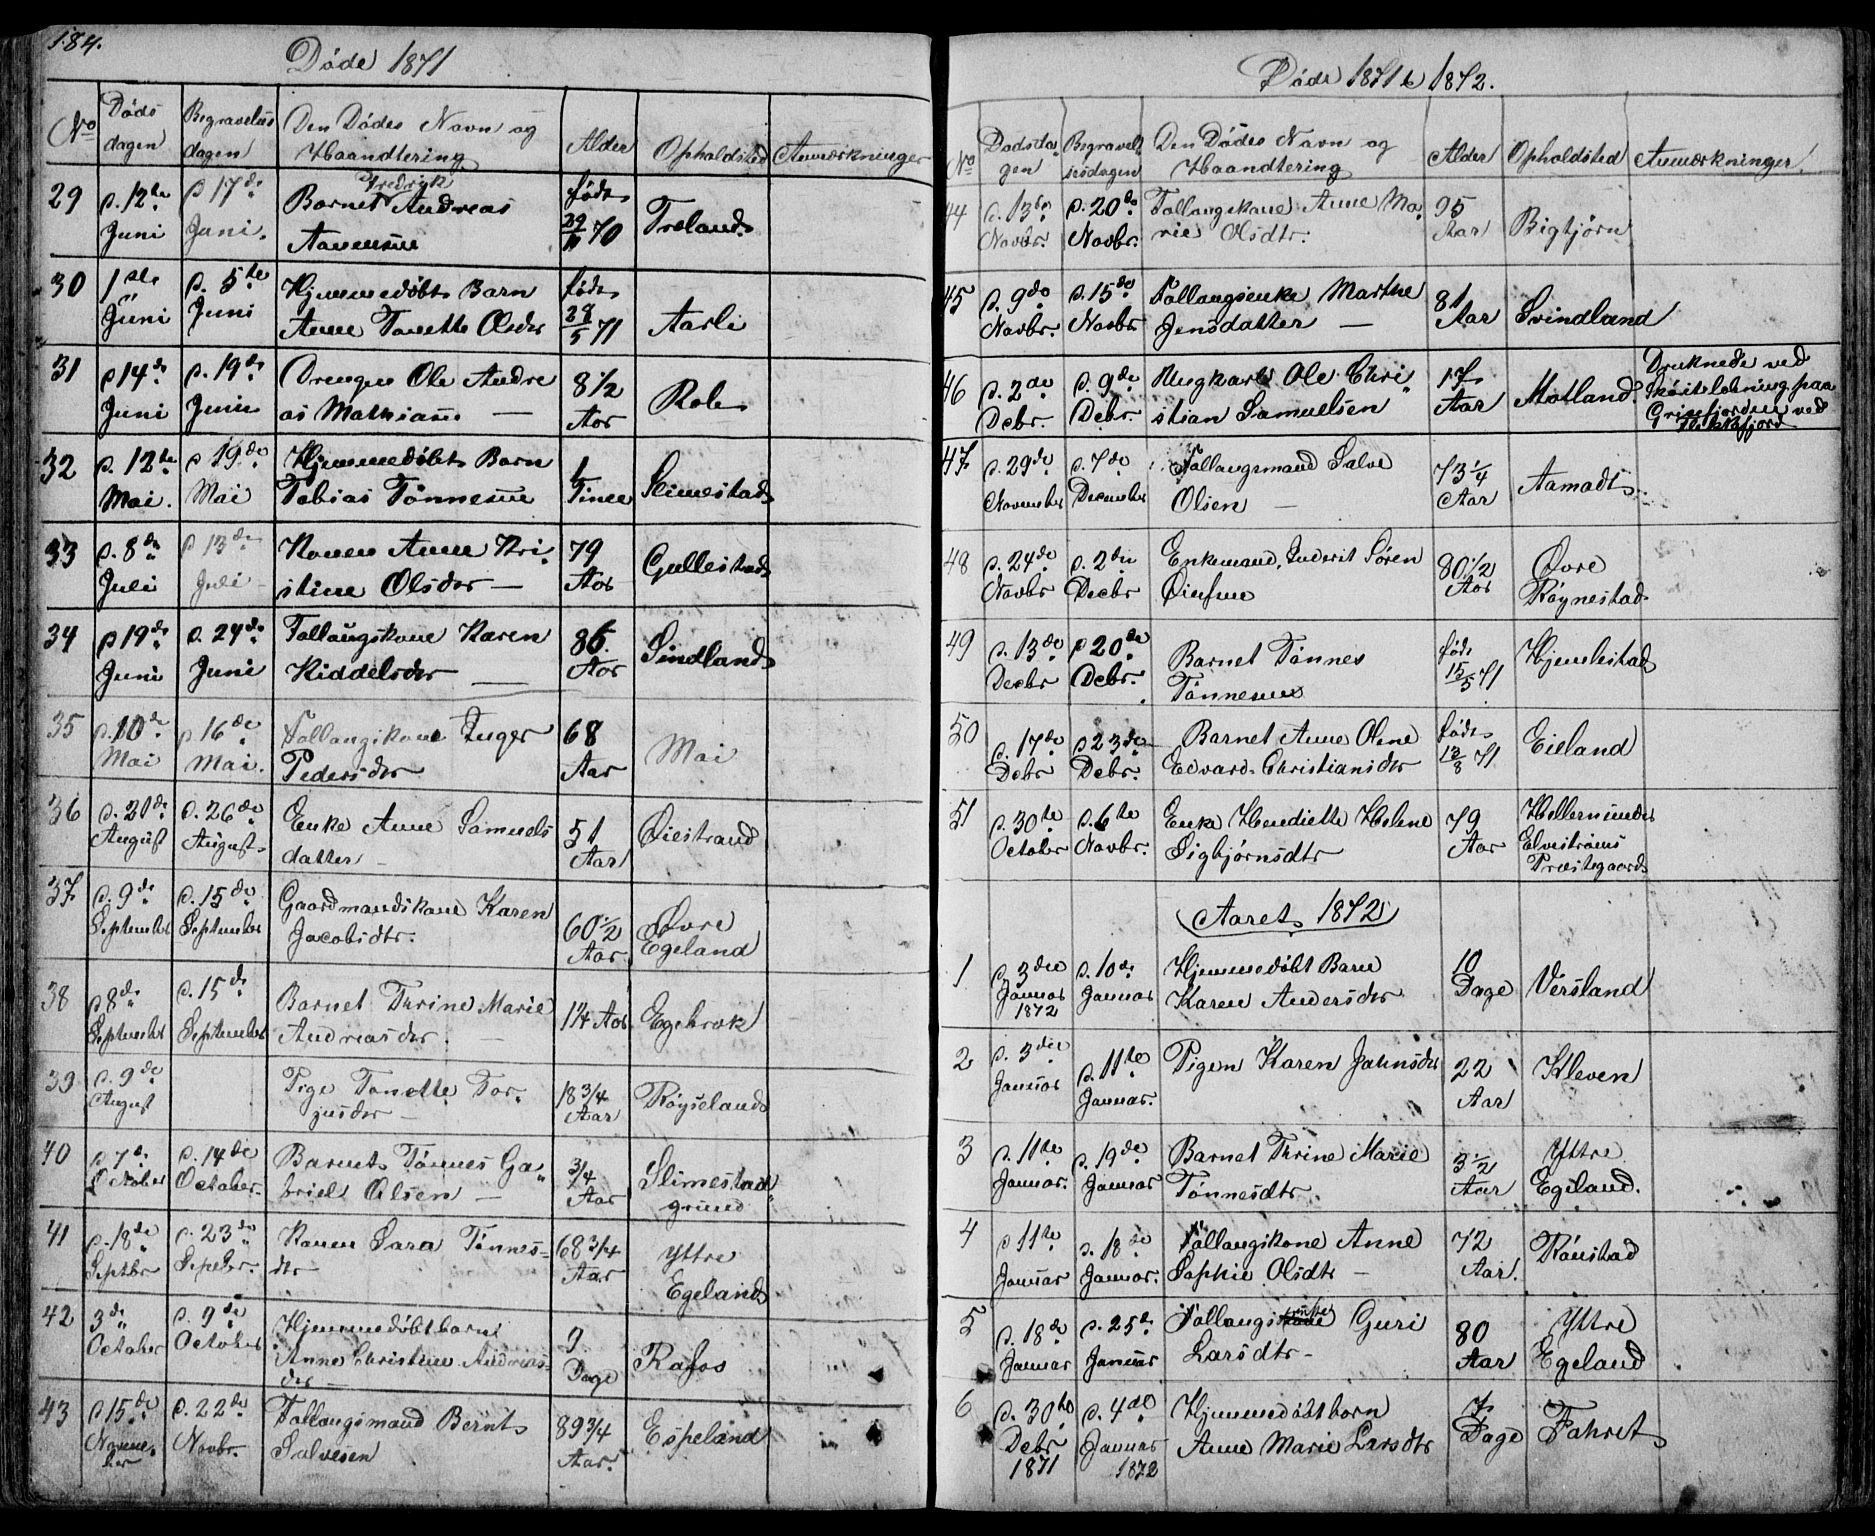 184.
Døde 1871
No
Døds
dagen
Begravelses
dagen
Den Dødes Navn og
Haandtering
Alder
Opholdsted
Anmærkninger
29
d. 12te
Juni
d 17de
Juni.
Barnet Fredrik Andreas
Aanensen
født
70
Treland
30
1ste
Juni
d. 5te
Juni
Hjemmedøbt Barn
Anne Tonette Olsdtr
født
28/5 71
Aarli
31
d 14de
Juni
d. 19de
Juni
Drengen Ole Andre
as Mathias. —
8 1/2
Aar
Role
32
d. 12te
Mai.
d 19de
Mai
Hjemmedøbt Barn
Tobias Tønnesen
1
Time
Slimestad
33
d. 8de
Juli
d 13de
Juli –
Konen Anne Kri
stine Olsdtr —
79
Aar
Gullestad
34
d 19de
Juni
d. 24de
Juni
Follaugskone Karen
Kiddelsdtr —
86
Aar
Sindland
35
d. 10de
Mai
d 16de
Mai.
Follaugskone Inger
Pedersdtr
68
Aar
Mai
36
d. 21de
August
d. 26de
August
Enke Anne Samuels
datter –
51
Aar
Øiestrand
37
d. 9de
September
d. 15de
September
Gaardmandskone Karen
Jacobsdtr.
60 1/2
Aar
Øvre
Egeland
38
d 8de
September
d. 15de
September
Barnet Thrine Marie
Andreasdtr. —
1 1/4 Aar
Egebrok
39
d. 9de
August
Pige Tonette Tor
jusdtr —
18 3/4
Aar
Røyseland
40
d 7de
October
d. 14de
October.
Barnet Tønnes Ga
briel Olsen —
3/4
Aar
Slimestad
grund
41
d. 18de
Septbr
d. 23de
Septbr.
Konen Sara Tønnes-
dtr —
68 3/4
Aar
Yttre
Egeland
42
3de
October
d. 9de
October
Hjemmedøbt barn
Anne Christine Andreas-
dtr —
9
Dage
Rafos
43
d 15de
Novem-
ber
d. 22de
Novbr.
Follaugsmand Bernt
Salvesen
89 3/4
Aar.
Espeland
Døde 1871 & 1872.
No
Dødsda-
gen
Begravel-
sesdagen
Den Dødes Navn og
Haandtering
Alder
Opholdsted
Anmærkninger.
44
d. 13de
Novbr.
d. 20de
Novbr.
Follaugskone Anne Ma-
rie Olsdtr.
95
Aar
Bigtjørn
45
d. 9de
Novbr.
d. 15de
Novbr
Follaugsenke Marthe
Jensdatter —
81
Aar
Svindland
46
d. 2de
Debr.
d. 9de
Debr.
Ungkarl Ole Chri
stian Samuelsen
17
Aar
Motland.
Druknede ved
Skøiteløbning paa
Grisefjorden ved
47
d. 29de
November
d. 7de
December
Follaugsmand Salve
Olsen —
73 1/4
Aar
Aamadt
48
d. 24de
Novbr
d. 2den
Decbr
Enkemand, Inderst Søren
80 1/2
Aar
Øvre
Røynestad
49
d. 13de
Decbr
d 20de
Debr.
Barnet Tønnes
Tønnesen
født
15/5 71
Hjemlestad
50
d. 17de
Debr
d 23de
Debr.
Barnet Anne Olene
Edvard Christiansdtr
født
12/8 71
Eieland
51
d. 30te
October
d. 6te
Novbr.
Enke Hendiette Helene
Sigbjørnsdtr
79
Aar
Elvestrøms
Præstegaard
Aaret 1872
1
d. 3den
Januar
1872
d. 10de
Januar
Hjemmedøbt Barn
Karen Andersdtr
10
Dage
Versland
2
d. 3die
Januar
d. 11te
Januar.
Pigen Karen Jahnsdtr
22
Aar
Kleven
3
d. 11te
Januar.
d. 19de
Januar
Barnet Thrine Marie
Tønnesdtr.
3 1/2
Aar
Yttre
Egeland.
4
d 11te
Januar
d. 18de
Januar.
Follaugskone Anne
Sophie Olsdtr —
72
Aar.
Rønstad
5
d. 18de
Januar
d. 25de
Januar
Follaugskone enke Guri
Larsdtr –
80
Aar
Yttre
Egeland
6
d. 30te
Debr
1871
d. 4de
Januar
1872
Hjemmedøbt barn
Anne Marie Larsdtr
7
Dage
Fahret